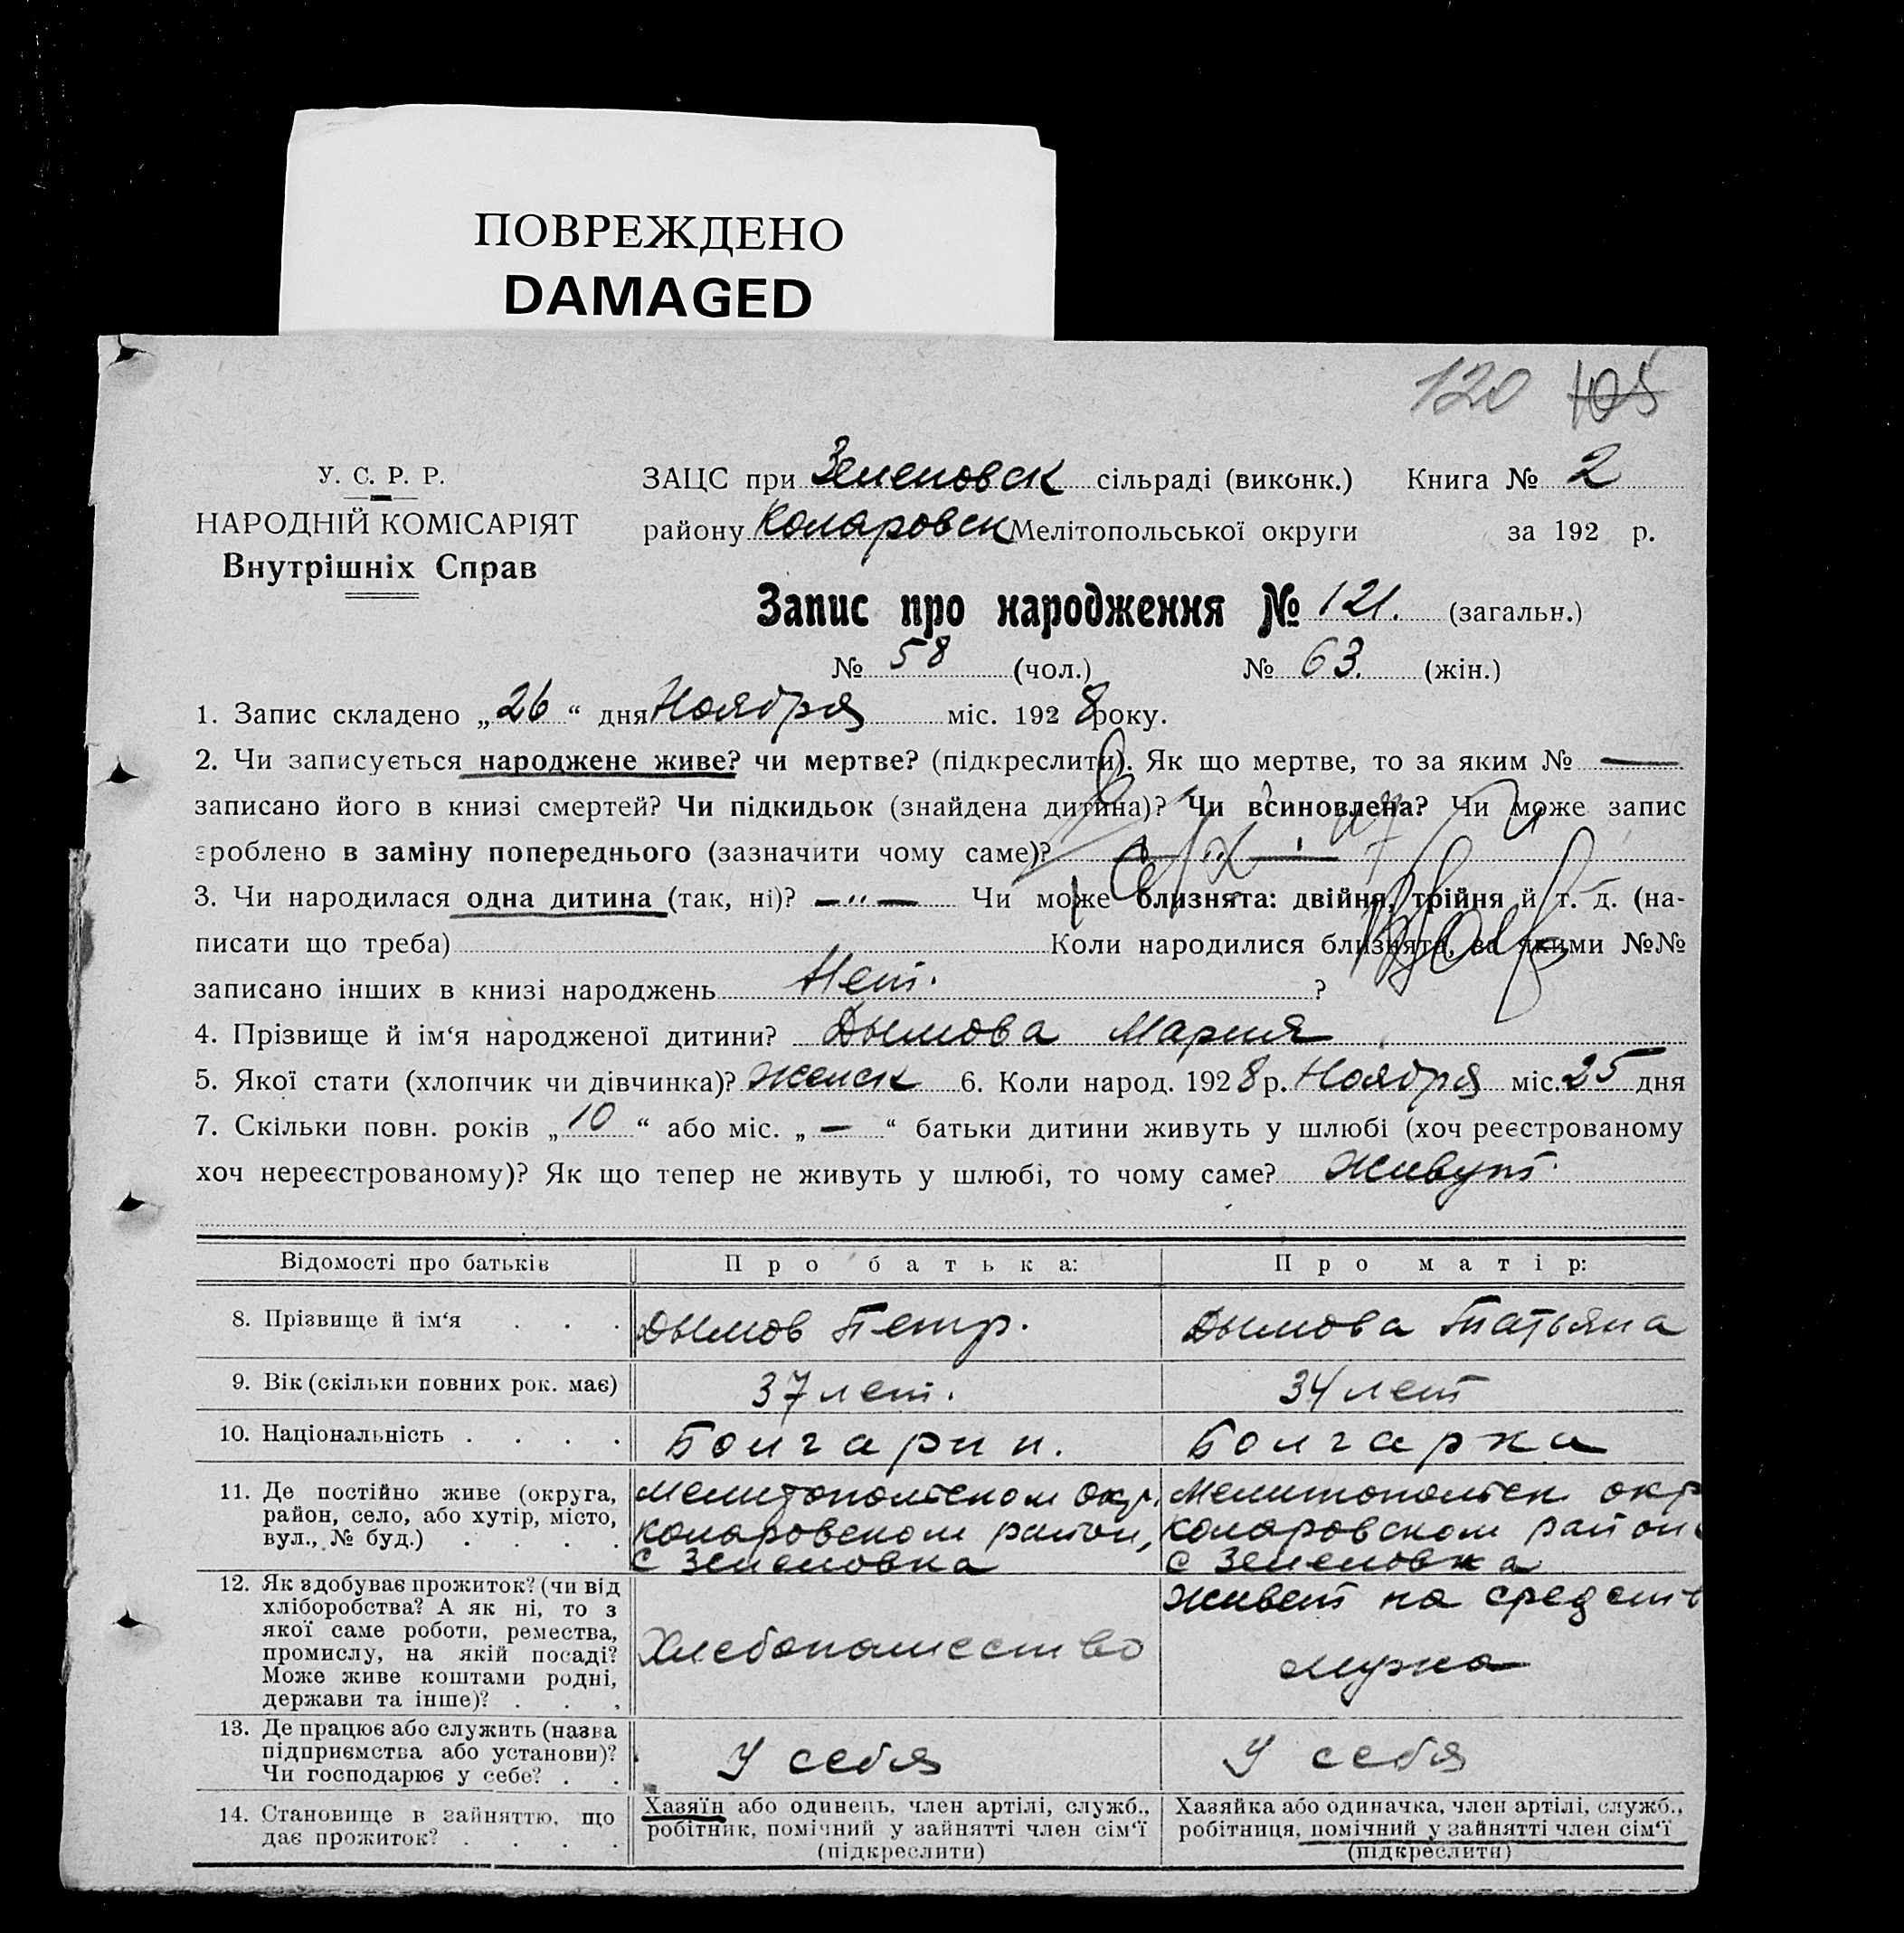 ПОВРЕЖДЕНО
DAMAGED
120 105
У. С. Р. Р.
НАРОДНІЙ КОМІСАРІЯТ
Внутрішніх Справ
ЗАЦС при Зеленовск сільраді (виконк.) Книга № 2
району Коларовск Мелітопольської округи за 192 р.
Запис про народження № 121. (загальн.)
№ 58 (чол.) № 63. (жін.)
1. Запис складено „26“ дня Ноября міс. 1928 року.
2. Чи записується народжене живе? чи мертве? (підкреслити). Як що мертве, то за яким № —
записано його в книзі смертей? Чи підкидьок (знайдена дитина)? Чи всиновлена? Чи може запис
зроблено в заміну попереднього (зазначити чому саме)?
3. Чи народилася одна дитина (так, ні)? —„— Чи може близнята: двійня, трійня й т. д. (на-
писати що треба) Коли народилися близнята, за якими №№
записано інших в книзі народжень Нет. ?
4. Прізвище й ім‘я народженої дитини? Дымова Мария
5. Якої стати (хлопчик чи дівчинка)? Женск 6. Коли народ. 1928 р. Ноября міс. 25 дня
7. Скільки повн. років „10“ або міс. „—“ батьки дитини живуть у шлюбі (хоч реєстрованому
хоч нереєстрованому)? Як що тепер не живуть у шлюбі, то чому саме? Живут.
Відомості про батьків Про батька: Про матір:
8. Прізвище й ім‘я . . . Дымов Петр. Дымова Татьяна
9. Вік (скільки повних рок. має) 37 лет. 34 лет
10. Національність . . . . Болгарин. Болгарка
11. Де постійно живе (округа,
район, село, або хутір, місто,
вул., № буд.) . . . .
Мелитопольском окр.
Коларовском район,
с Зеленовка
Мелитопольск окр
Коларовском район
с Зеленовка
12. Як здобуває прожиток? (чи від
хліборобства? А як ні, то з
якої саме роботи, ремества,
промислу, на якій посаді?
Може живе коштами родні,
держави та інше)? . . .
Хлебопашество
Живет на средств
мужа
13. Де працює або служить (назва
підприємства або установи)?
Чи господарює у себе? . .
У себя
У себя
14. Становище в зайняттю, що
дає прожиток? . . . .
Хазяїн або одинець, член артілі, служб.,
робітник, помічний у зайнятті член сім‘ї
(підкреслити)
Хазяйка або одиначка, член артілі, служб.,
робітниця, помічний у зайнятті член сім‘ї
(підкреслити)